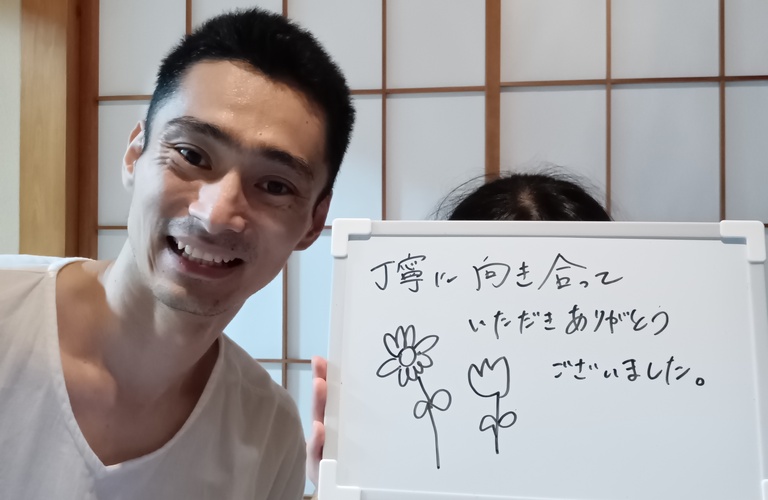 丁寧に向き合って
いただきありがとう
ございました。